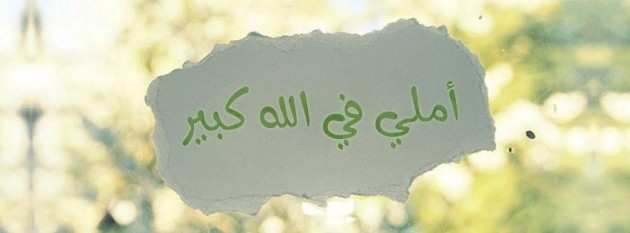 أملي في الله كبير